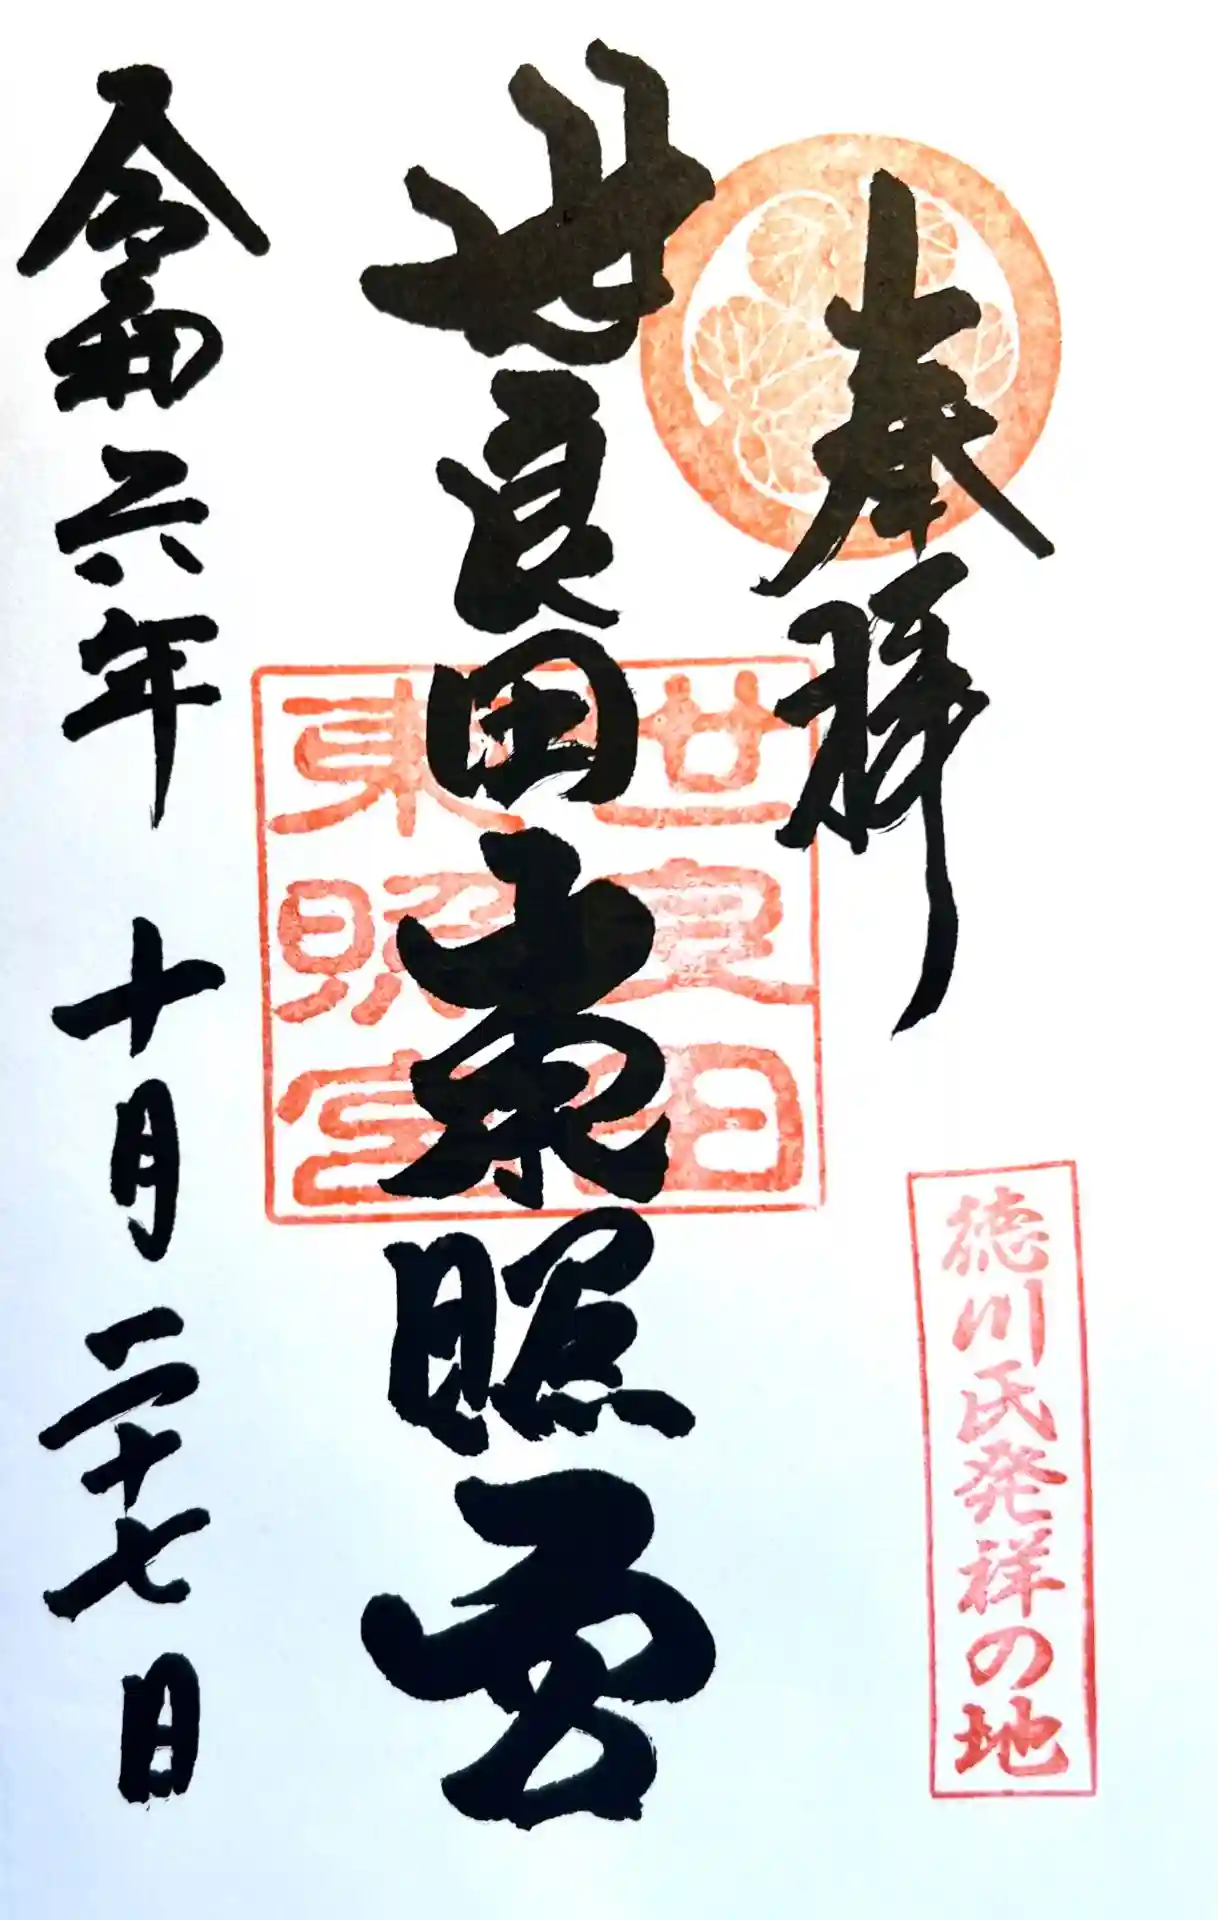 奉拝
徳川氏発祥の地
世良田東照宮
世良田
東照宮
令和六年 十月 二十七日